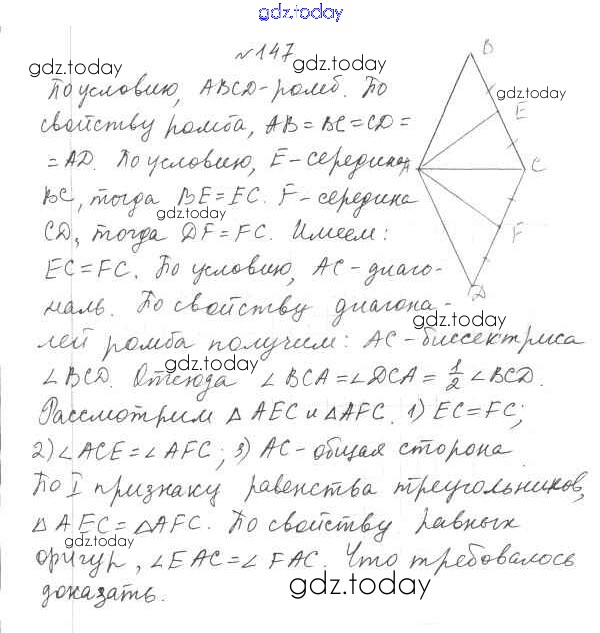 gdz.today
№147
gdz.today
gdz.today
По условию, ABCD-ромб. По
gdz.today
свойству ромба, AB=BC=CD=
=AD. По условию, E-середина
BC, тогда BE=EC. F-середина
gdz.today
CD, тогда DF=FC. Имеем:
EC=FC. По условию, AC-диаго-
наль. По свойству диагона-
gdz.today
лей ромба получим: AC-биссектриса
gdz.today
∠BCD. Отсюда ∠BCA=∠DCA=1/2∠BCD.
Рассмотрим △AEC и △AFC. 1) EC=FC;
2)∠ACE=∠AFC; 3) AC-общая сторона
По I признаку равенства треугольников,
△AEC=△AFC. По свойству равных
gdz.today
фигур, ∠EAC=∠FAC. Что требовалось
доказать.
gdz.today
B
E
A
C
F
D